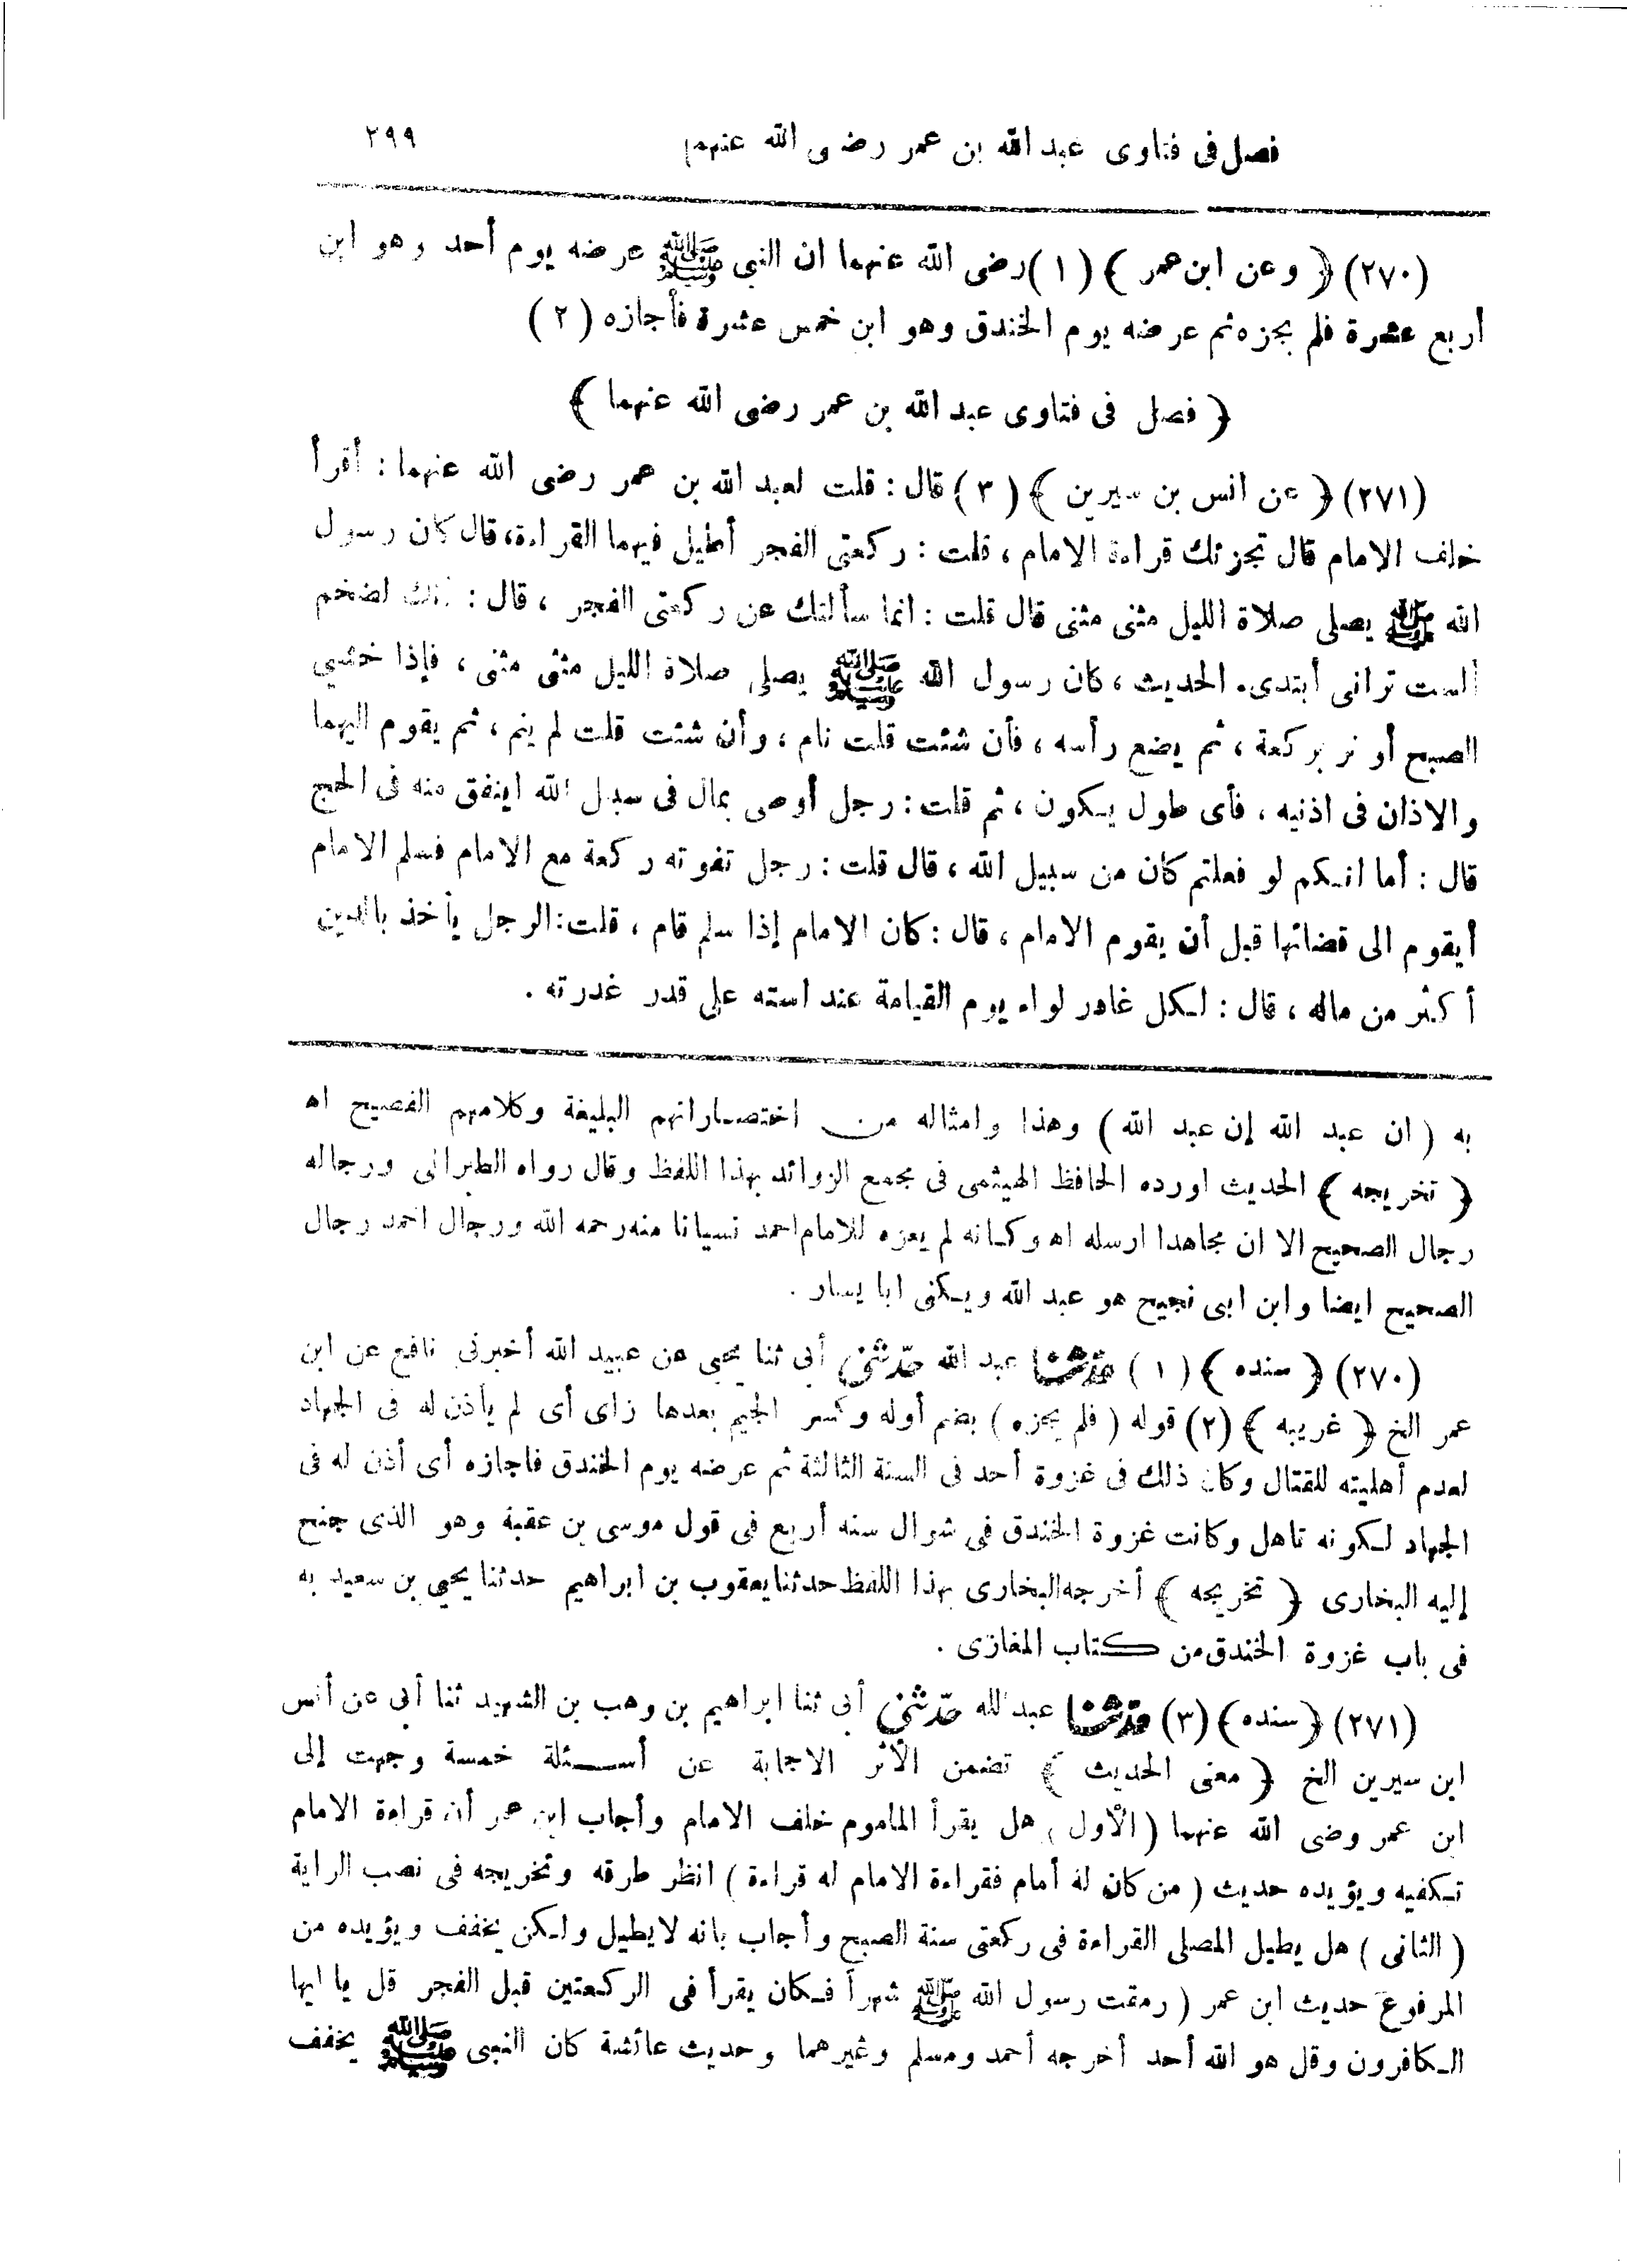 فصل فى فتاوى عبد الله بن عمر رضى الله عنهما ٢٩٩
(٢٧٠) ﴿ وعن ابن عمر ﴾ (١) رضى الله عنهما ان النبى ﷺ عرضه يوم أحد وهو ابن
أربع عشرة فلم يجزه ثم عرضه يوم الخندق وهو ابن خمس عشرة فأجازه (٢)
﴿ فصل فى فتاوى عبد الله بن عمر رضى الله عنهما ﴾
(٢٧١) ﴿ عن انس بن سيرين ﴾ (٣) قال : قلت لعبد الله بن عمر رضى الله عنهما : أقرأ
خلف الامام قال تجزئك قراءة الامام ، قلت : ركعتى الفجر أطيل فيهما القراءة، قال كان رسول
الله ﷺ يصلى صلاة الليل مثنى مثنى قال قلت : انما سألتك عن ركعتى الفجر ، قال : انك لضخم
ألست ترانى أبتدىء الحديث ، كان رسول الله ﷺ يصلى صلاة الليل مثنى مثنى ، فإذا خشي
الصبح أوتر بركعة ، ثم يضع رأسه ، فأن شئت قلت نام ، وأن شئت قلت لم ينم ، ثم يقوم اليهما
والاذان فى اذنيه ، فأى طول يكون ، ثم قلت : رجل أوصى بمال فى سبيل الله اينفق منه فى الحج
قال : أما انكم لو فعلتم كان من سبيل الله ، قال قلت : رجل تفوته ركعة مع الامام فسلم الامام
أيقوم الى قضائها قبل أن يقوم الامام ، قال : كان الامام إذا سلم قام ، قلت : الرجل يأخذ بالدين
أكثر من ماله ، قال : لكل غادر لواء يوم القيامة عند استه على قدر غدرته .
به ( ان عبد الله إن عبد الله ) وهذا وامثاله من اختصاراتهم البليغة وكلامهم الفصيح اه
﴿ تخريجه ﴾ الحديث اورده الحافظ الهيثمى فى مجمع الزوائد بهذا اللفظ وقال رواه الطبرانى ورجاله
رجال الصحيح الا ان مجاهدا ارسله اه وكانه لم يعزه للامام احمد نسيانا منه رحمه الله ورجال احمد رجال
الصحيح ايضا وابن ابى نجيح هو عبد الله ويكنى ابا يسار .
(٢٧٠) ﴿ سنده ﴾ (١) حدثنا عبد الله حدثنى أبى ثنا يحيى عن عبيد الله أخبرنى نافع عن ابن
عمر الخ ﴿ غريبه ﴾ (٢) قوله ( فلم يجزه ) بضم أوله وكسر الجيم بعدها زاى أى لم يأذن له فى الجهاد
لعدم أهليته للقتال وكان ذلك فى غزوة أحد فى السنة الثالثة ثم عرضه يوم الخندق فاجازه أى أذن له فى
الجهاد لكونه تاهل وكانت غزوة الخندق فى شوال سنه أربع فى قول موسى بن عقبة وهو الذى جنح
إليه البخارى ﴿ تخريجه ﴾ أخرجه البخارى بهذا اللفظ حدثنا يعقوب بن ابراهيم حدثنا يحيى بن سعيد به
فى باب غزوة الخندق من كتاب المغازى .
(٢٧١) ﴿سنده﴾ (٣) حدثنا عبد الله حدثنى أبى ثنا ابراهيم بن وهب بن الشهيد ثنا أبى عن أنس
ابن سيرين الخ ﴿ معنى الحديث ﴾ تضمن الأثر الاجابة عن أسئلة خمسة وجهت إلى
ابن عمر وضى الله عنهما ( الأول ) هل يقرأ الماموم خلف الامام وأجاب ابن عمر أن قراءة الامام
تكفيه ويؤيده حديث ( من كان له أمام فقراءة الامام له قراءة ) انظر طرقه وتخريجه فى نصب الراية
( الثانى ) هل يطيل المصلى القراءة فى ركعتى سنة الصبح وأجاب بانه لا يطيل ولكن يخفف ويؤيده من
المرفوع حديث ابن عمر ( رمقت رسول الله ﷺ شهراً فكان يقرأ فى الركعتين قبل الفجر قل يا ايها
الكافرون وقل هو الله أحد أخرجه أحمد ومسلم وغيرهما وحديث عائشة كان النبى ﷺ يخفف